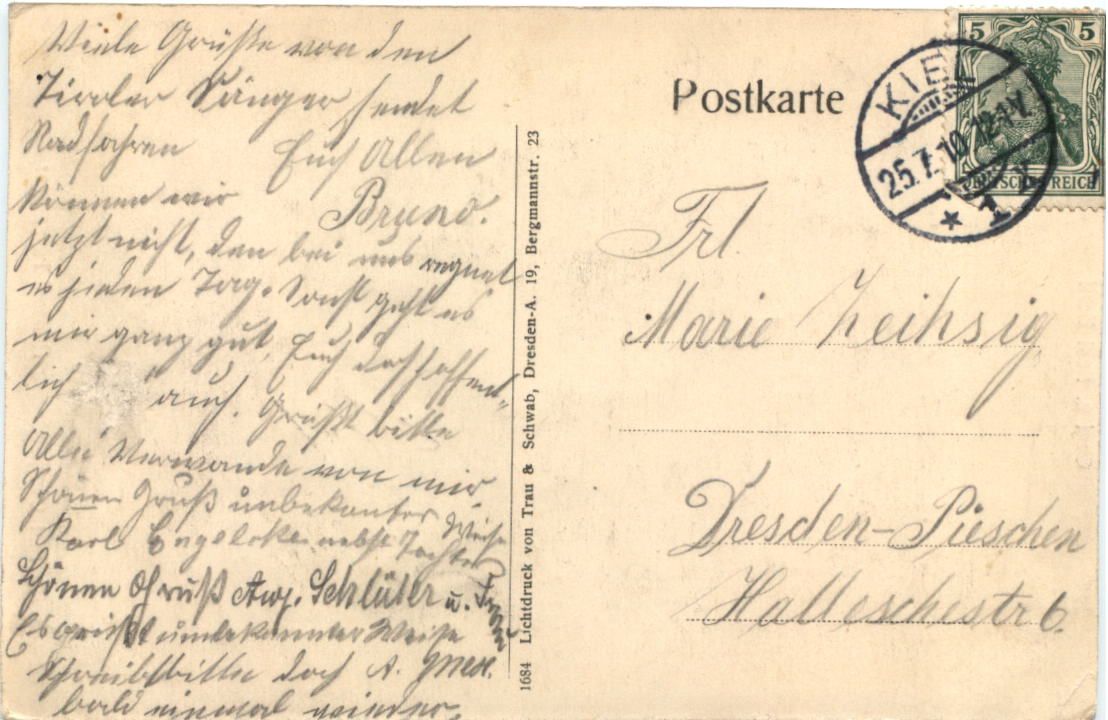 Viele Grüße von den
Tiroler Sänger sendet
Radfahren Euch Allen
können wir Bruno.
jetzt nicht, den bei uns regnet
es jeden Tag. Sonst geht es
mir ganz gut, Euch doch hoffent-
lich auch. Grüßt bitte
Alle Verwande von mir
Schönen Gruß unbekanter Weise
Karl nebst Tochter
Schönen Gruß Aug. Schlüter u. Frau
Es grüßt unbekannter Weise
A.
Schreibt bitte doch
bald einmal wieder.
1684 Lichtdruck von Trau & Schwab, Dresden-A. 19, Bergmannstr. 23
Postkarte
5 5
DEUTSCHES REICH
KIEL
25.7.10.12-1 V.
* 1
Frl.
Marie Zeihsig
Dresden-Pieschen
Halleschestr 6.